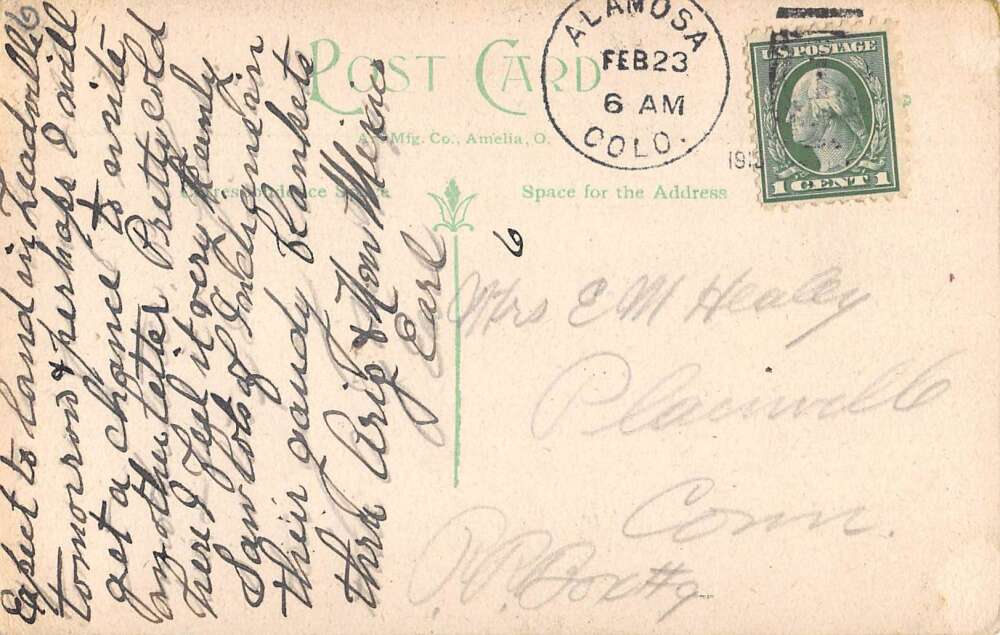 Expect to land in Leadville
tomorrow & perhaps I will
get a chance to write
another letter Pretty cold
here I feel it very keenly
Saw lots of Indians in
their gaudy blankets
thru Ariz & New Mexico
Earl
6
POST CARD
Mfg. Co., Amelia, O.
Correspondence
Space for the Address
ALAMOSA
FEB 23
6 AM
COLO.
U.S. POSTAGE
1 CENT 1
6
Mrs E M Healey
Plainville
Conn.